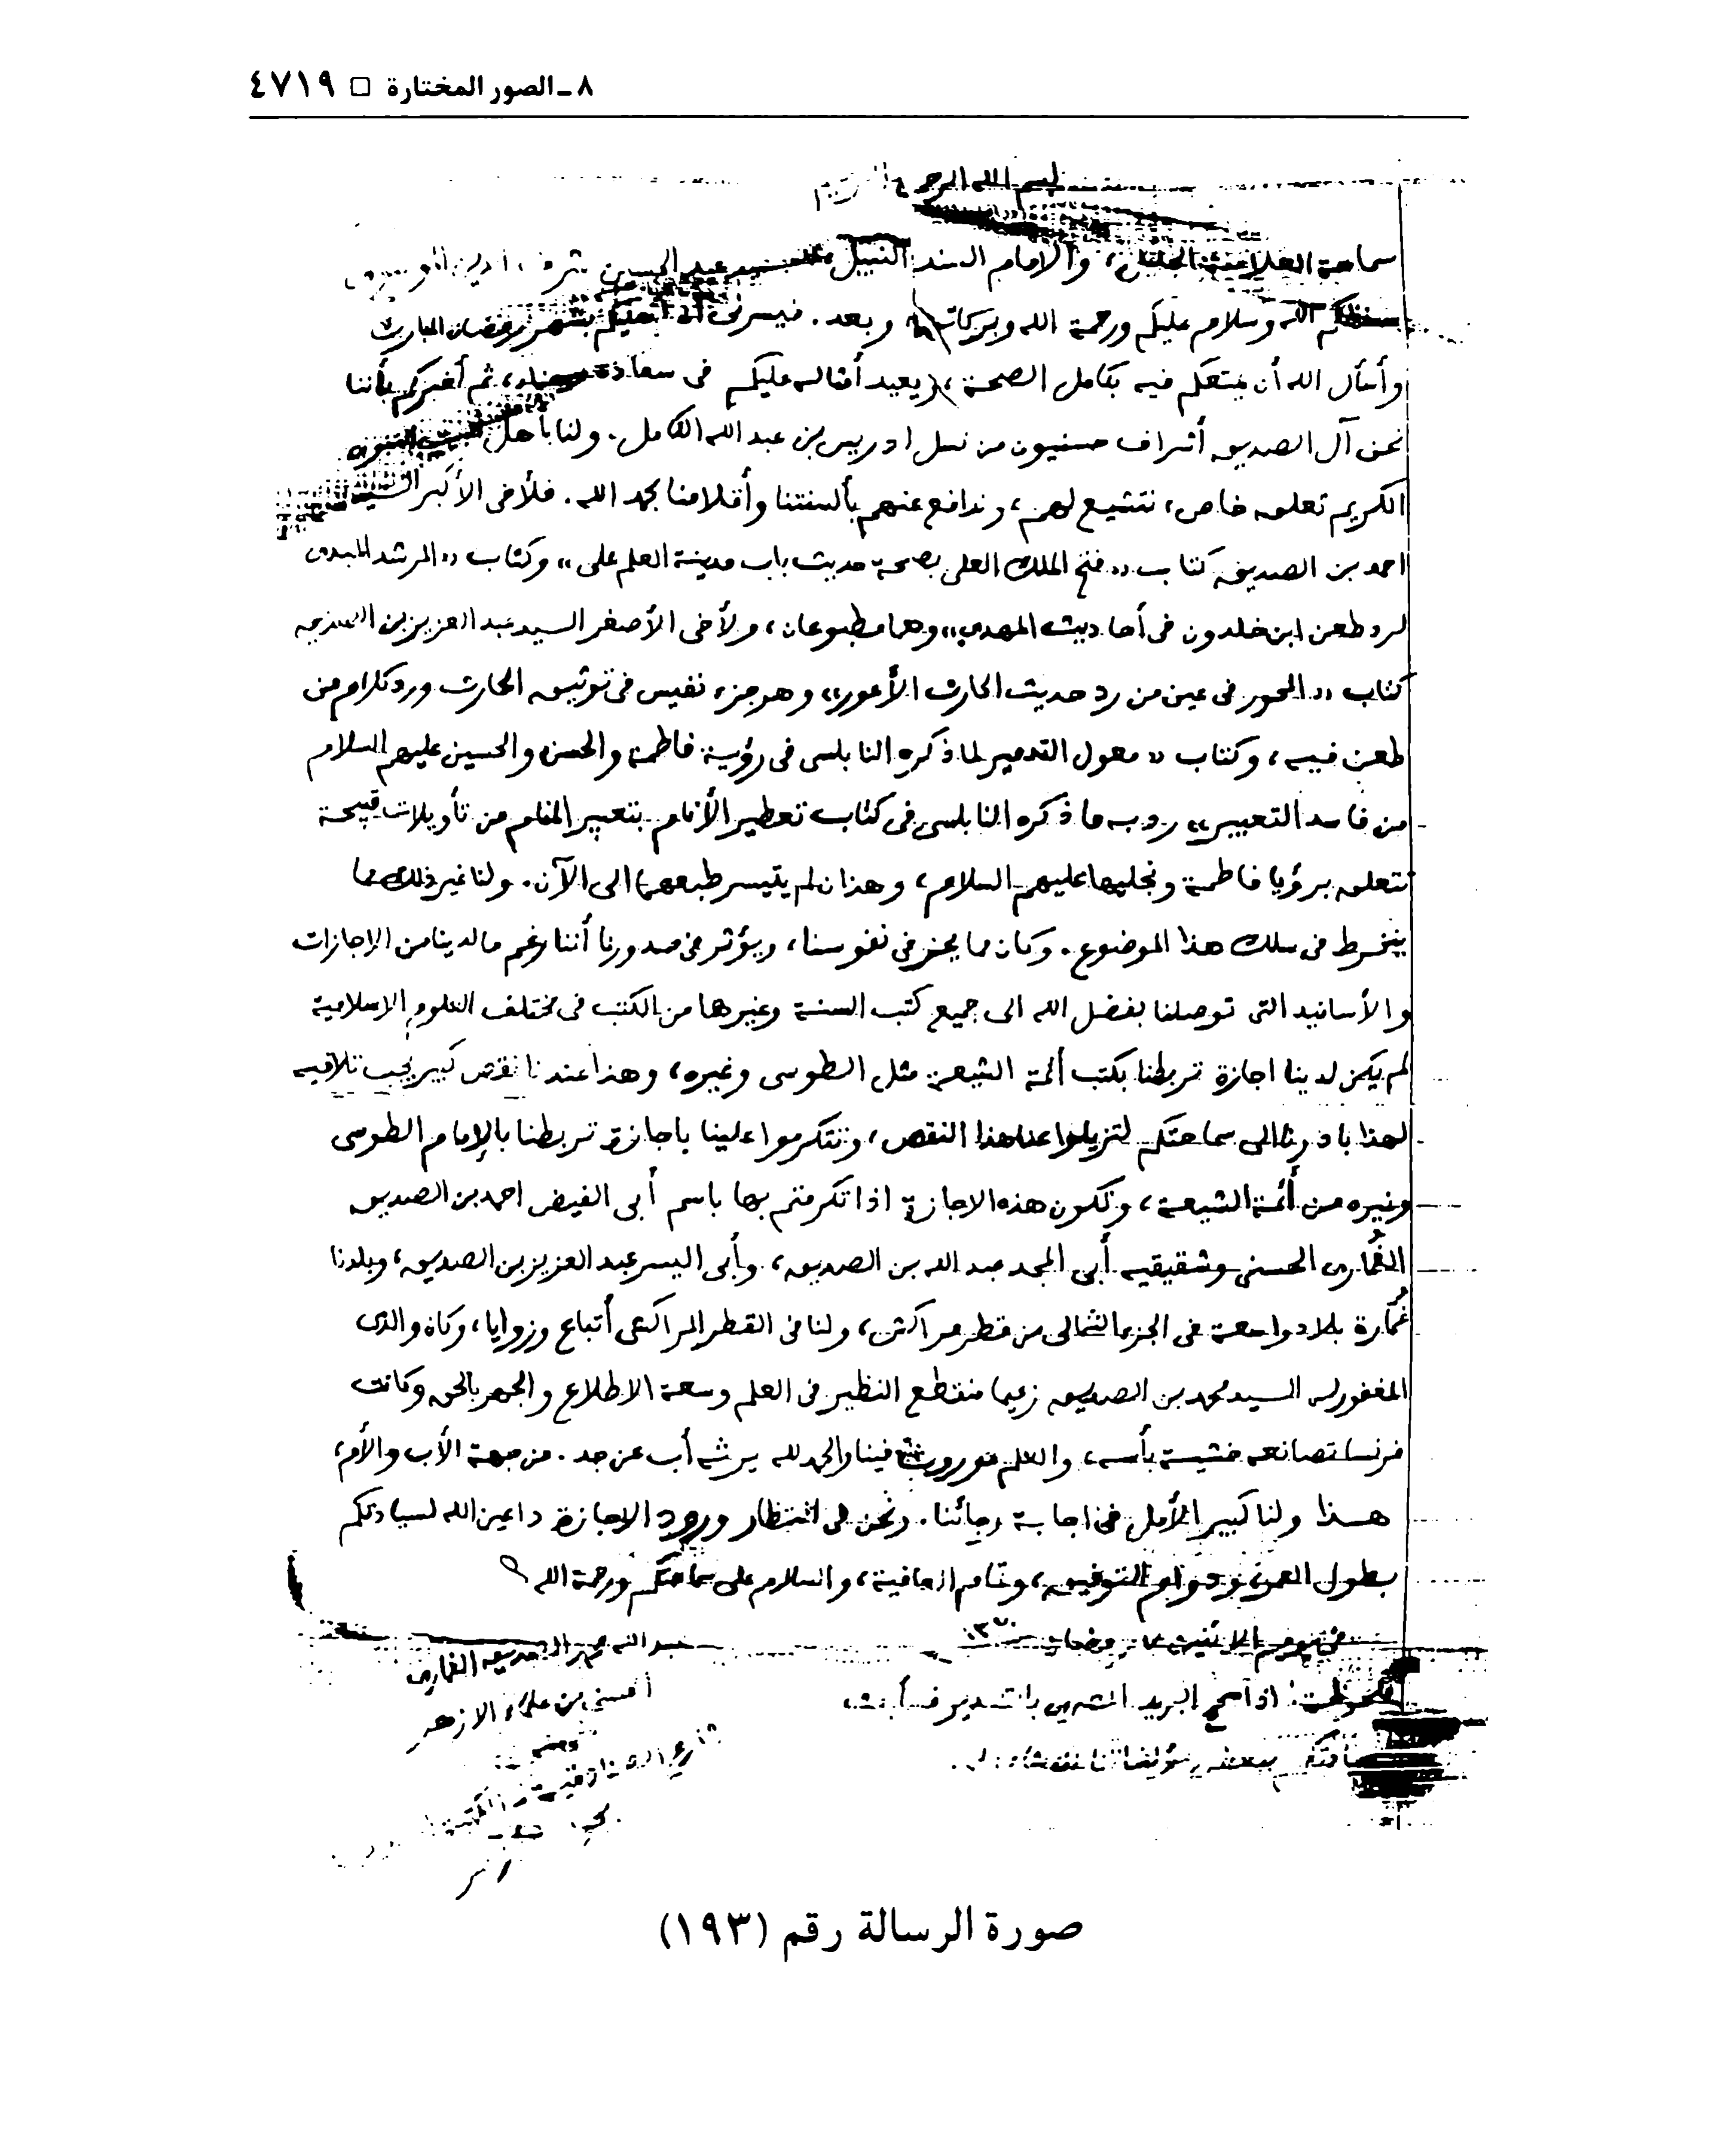 ٨ ـ الصور المختارة □ ٤٧١٩
بسم الله الرحمن الرحيم
سماحة العلامة الجليل، والامام السند النبيل عبد الحسين شرف الدين الموسوى
الله وسلام عليكم ورحمة الله وبركاته وبعد. فيسرنى أن أهنيكم بشهر رمضان المبارك
وأسأل الله أن يمتعكم فيه بكامل الصحة، ويعيد أمثاله عليكم فى سعادة وهناء، ثم أخبركم بأننا
نحن آل الصديق أشراف حسنيون من نسل ادريس بن عبد الله الكامل. ولنا بأهل البيت النبوى
الكريم تعلق خاص، نتشيع لهم، وندافع عنهم بألسنتنا وأقلامنا بحمد الله. فلأخى الأكبر السيد
احمد بن الصديق كتاب «فتح الملك العلى بصحة حديث باب مدينة العلم على» وكتاب «المرشد المبدى
لرد طعن ابن خلدون فى أحاديث المهدى» وهما مطبوعان، ولأخى الأصغر السيد عبد العزيز بن الصديق
كتاب «المحور فى عين من رد حديث الحارث الأعور» وهو جزء نفيس فى توثيق الحارث ورد كلام من
طعن فيه، وكتاب «معول التدمير لما ذكره النابلسى فى رؤية فاطمة والحسن والحسين عليهم السلام
من فاسد التعبير» رد به ما ذكره النابلسى فى كتاب تعطير الأنام بتعبير المنام من تأويلات قبيحة
تتعلق برؤيا فاطمة ونجليها عليهم السلام، وهذان لم يتيسر طبعهما الى الآن. ولنا غير ذلك مما
ينخرط فى سلك هذا الموضوع. وكان مما يحز فى نفوسنا، ويؤثر فى صدورنا أننا رغم ما لدينا من الاجازات
والأسانيد التى توصلنا بفضل الله الى جميع كتب السنة وغيرها من الكتب فى مختلف العلوم الاسلامية
لم يكن لدينا اجازة تربطنا بكتب أئمة الشيعة مثل الطوسى وغيره، وهذا عندنا نقص كبير يجب تلافيه
لهذا بادرنا الى سماحتكم لتزيلوا عنا هذا النقص، وتتكرموا علينا باجازة تربطنا بالإمام الطوسى
وغيره من أئمة الشيعة، ولتكون هذه الاجازة اذا تكرمتم بها باسم أبى الفيض احمد بن الصديق
الغُمارى الحسنى وشقيقيه أبى المجد عبد الله بن الصديق، وأبى اليسر عبد العزيز بن الصديق، وبلدنا
غُمارة بلاد واسعة فى الجزء الشمالى من قطر مراكش، ولنا فى القطر المراكشى أتباع وزوايا، وكان والدى
المغفور له السيد محمد بن الصديق زعيما منقطع النظير فى العلم وسعة الاطلاع والجهر بالحق وكانت
فرنسا تصانعه خشية بأسه، والعلم موروث فينا والحمد لله يرثه أب عن جد. من جهة الأب والأم،
هذا ولنا كبير الأمل فى اجابة رجائنا. ونحن فى انتظار ورود الاجازة داعين الله لسيادتكم
بطول العمر، ودوام التوفيق، وتمام العافية، والسلام على سماحتكم ورحمة الله
فى يوم الاثنين رمضان ١٣٧٠
عبد الله محمد الصديق الغمارى
الحسنى من علماء الازهر
ملحوظة: اذا سمح البريد
شارع
بعض مؤلفاتنا
صورة الرسالة رقم (١٩٣)